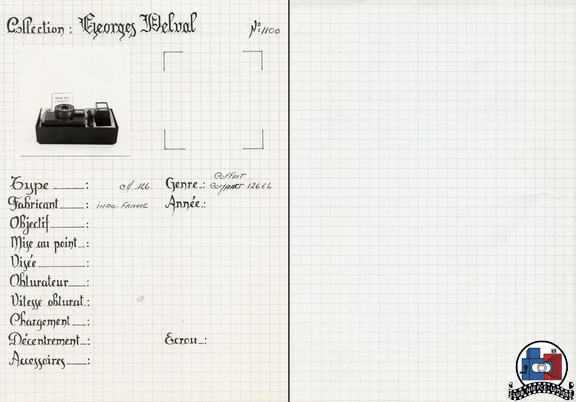 Collection : Georges Delval N°:1100
Type : Genre : Coffret
Compact 126EL
Fabricant : indo.France Année.:
Objectif :
Mise au point :
Visée :
Obturateur :
Vitesse obturat.:
Chargement :
Décentrement : Ecrou :
Accessoires :